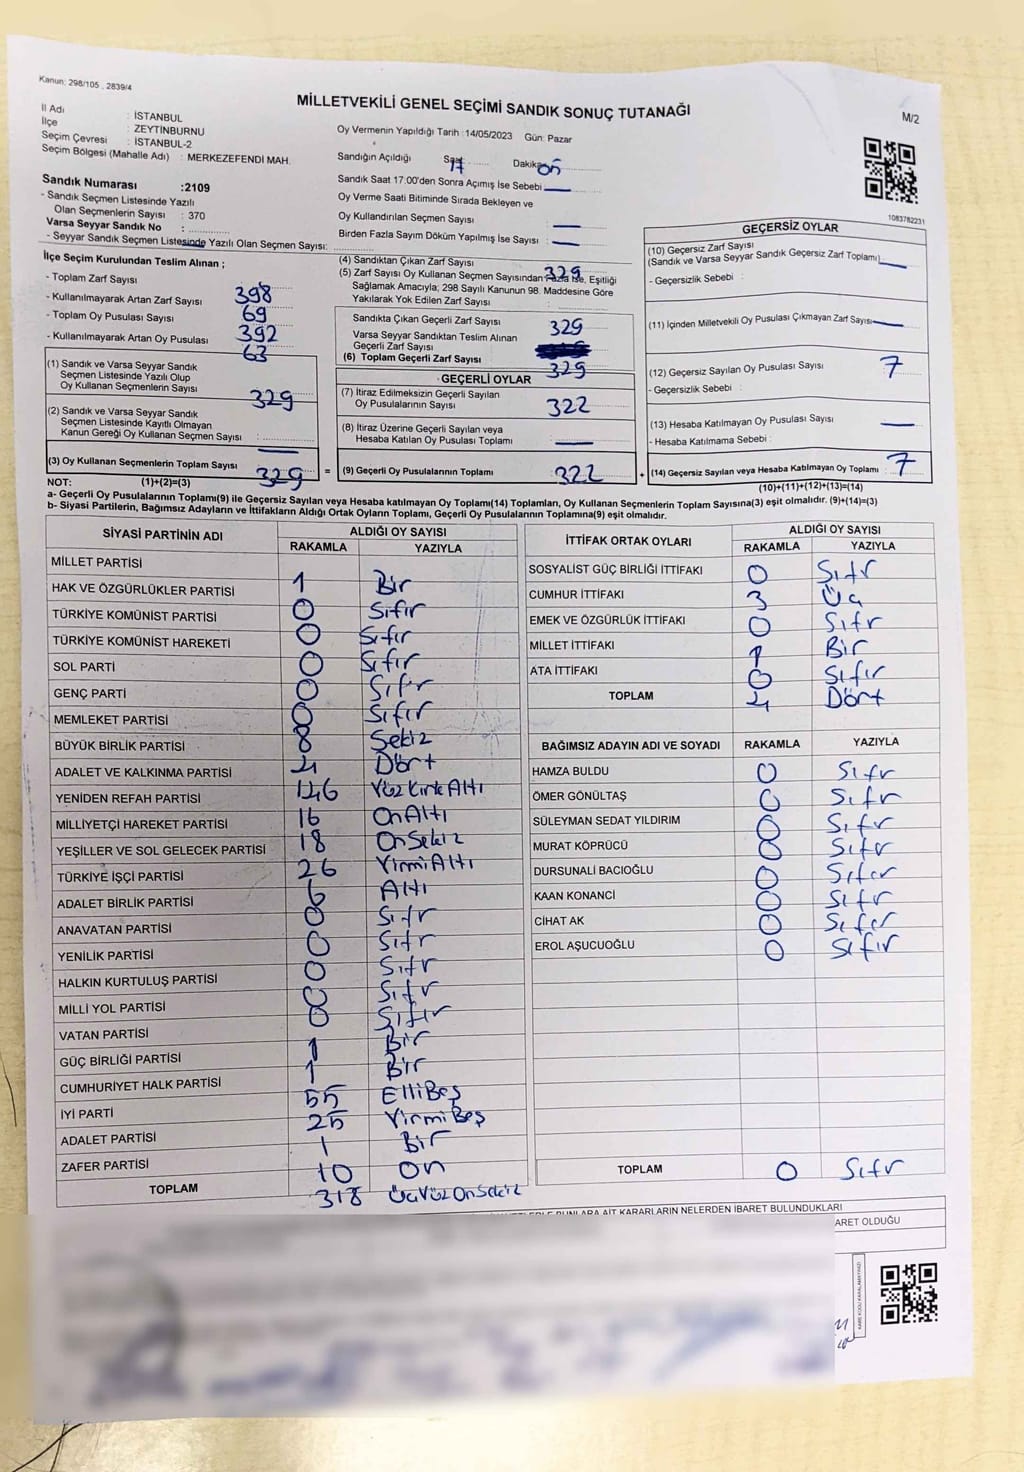 Kanun: 298/105 , 2839/4
MİLLETVEKİLİ GENEL SEÇİMİ SANDIK SONUÇ TUTANAĞI
M/2
İl Adı : İSTANBUL
İlçe : ZEYTİNBURNU
Seçim Çevresi : İSTANBUL-2
Seçim Bölgesi (Mahalle Adı) : MERKEZEFENDİ MAH.
Sandık Numarası :2109
- Sandık Seçmen Listesinde Yazılı
Olan Seçmenlerin Sayısı : 370
Varsa Seyyar Sandık No :
- Seyyar Sandık Seçmen Listesinde Yazılı Olan Seçmen Sayısı:
Oy Vermenin Yapıldığı Tarih :14/05/2023 Gün: Pazar
Sandığın Açıldığı Saat 17 Dakika 05
Sandık Saat 17:00'den Sonra Açımış İse Sebebi
Oy Verme Saati Bitiminde Sırada Bekleyen ve
Oy Kullandırılan Seçmen Sayısı
Birden Fazla Sayım Döküm Yapılmış İse Sayısı
1083782231
İlçe Seçim Kurulundan Teslim Alınan ;
- Toplam Zarf Sayısı 398
- Kullanılmayarak Artan Zarf Sayısı 69
- Toplam Oy Pusulası Sayısı 392
- Kullanılmayarak Artan Oy Pusulası 63
(1) Sandık ve Varsa Seyyar Sandık
Seçmen Listesinde Yazılı Olup
Oy Kullanan Seçmenlerin Sayısı 329
(2) Sandık ve Varsa Seyyar Sandık
Seçmen Listesinde Kayıtlı Olmayan
Kanun Gereği Oy Kullanan Seçmen Sayısı :
(3) Oy Kullanan Seçmenlerin Toplam Sayısı 329 =
(4) Sandıktan Çıkan Zarf Sayısı 329
(5) Zarf Sayısı Oy Kullanan Seçmen Sayısından Fazla ise, Eşitliği
Sağlamak Amacıyla; 298 Sayılı Kanunun 98. Maddesine Göre
Yakılarak Yok Edilen Zarf Sayısı
Sandıkta Çıkan Geçerli Zarf Sayısı 329
Varsa Seyyar Sandıktan Teslim Alınan
Geçerli Zarf Sayısı
(6) Toplam Geçerli Zarf Sayısı 329
GEÇERLİ OYLAR
(7) İtiraz Edilmeksizin Geçerli Sayılan
Oy Pusulalarının Sayısı 322
(8) İtiraz Üzerine Geçerli Sayılan veya
Hesaba Katılan Oy Pusulası Toplamı
(9) Geçerli Oy Pusulalarının Toplamı 322 +
GEÇERSİZ OYLAR
(10) Geçersiz Zarf Sayısı
(Sandık ve Varsa Seyyar Sandık Geçersiz Zarf Toplamı)
- Geçersizlik Sebebi :
(11) İçinden Milletvekili Oy Pusulası Çıkmayan Zarf Sayısı
(12) Geçersiz Sayılan Oy Pusulası Sayısı 7
- Geçersizlik Sebebi :
(13) Hesaba Katılmayan Oy Pusulası Sayısı
- Hesaba Katılmama Sebebi :
(14) Geçersiz Sayılan veya Hesaba Katılmayan Oy Toplamı : 7
NOT: (1)+(2)=(3)
(10)+(11)+(12)+(13)=(14)
a- Geçerli Oy Pusulalarının Toplamı(9) ile Geçersiz Sayılan veya Hesaba katılmayan Oy Toplamı(14) Toplamları, Oy Kullanan Seçmenlerin Toplam Sayısına(3) eşit olmalıdır. (9)+(14)=(3)
b- Siyasi Partilerin, Bağımsız Adayların ve İttifakların Aldığı Ortak Oyların Toplamı, Geçerli Oy Pusulalarının Toplamına(9) eşit olmalıdır.
SİYASİ PARTİNİN ADI ALDIĞI OY SAYISI
RAKAMLA YAZIYLA
MİLLET PARTİSİ 1 Bir
HAK VE ÖZGÜRLÜKLER PARTİSİ 0 Sıfır
TÜRKİYE KOMÜNİST PARTİSİ 0 Sıfır
TÜRKİYE KOMÜNİST HAREKETİ 0 Sıfır
SOL PARTİ 0 Sıfır
GENÇ PARTİ 0 Sıfır
MEMLEKET PARTİSİ 8 Sekiz
BÜYÜK BİRLİK PARTİSİ 4 Dört
ADALET VE KALKINMA PARTİSİ 146 Yüz Kırk Altı
YENİDEN REFAH PARTİSİ 16 On Altı
MİLLİYETÇİ HAREKET PARTİSİ 18 On Sekiz
YEŞİLLER VE SOL GELECEK PARTİSİ 26 Yirmi Altı
TÜRKİYE İŞÇİ PARTİSİ 6 Altı
ADALET BİRLİK PARTİSİ 0 Sıfr
ANAVATAN PARTİSİ 0 Sıfr
YENİLİK PARTİSİ 0 Sıfr
HALKIN KURTULUŞ PARTİSİ 0 Sıfr
MİLLİ YOL PARTİSİ 0 Sıfır
VATAN PARTİSİ 1 Bir
GÜÇ BİRLİĞİ PARTİSİ 1 Bir
CUMHURİYET HALK PARTİSİ 55 Elli Beş
İYİ PARTİ 25 Yirmi Beş
ADALET PARTİSİ 1 Bir
ZAFER PARTİSİ 10 On
TOPLAM 318 Üç Yüz On Sekiz
İTTİFAK ORTAK OYLARI ALDIĞI OY SAYISI
RAKAMLA YAZIYLA
SOSYALİST GÜÇ BİRLİĞİ İTTİFAKI 0 Sıfr
CUMHUR İTTİFAKI 3 Üç
EMEK VE ÖZGÜRLÜK İTTİFAKI 0 Sıfr
MİLLET İTTİFAKI 1 Bir
ATA İTTİFAKI 0 Sıfır
TOPLAM 4 Dört
BAĞIMSIZ ADAYIN ADI VE SOYADI RAKAMLA YAZIYLA
HAMZA BULDU 0 Sıfr
ÖMER GÖNÜLTAŞ 0 Sıfr
SÜLEYMAN SEDAT YILDIRIM 0 Sıfr
MURAT KÖPRÜCÜ 0 Sıfr
DURSUNALİ BACIOĞLU 0 Sıfır
KAAN KONANCİ 0 Sıfr
CİHAT AK 0 Sıfır
EROL AŞUCUOĞLU 0 Sıfır
TOPLAM 0 Sıfr
BUNLARA AİT KARARLARIN NELERDEN İBARET BULUNDUKLARI
ARET OLDUĞU
KARE KODU KARALAMAYINIZ!